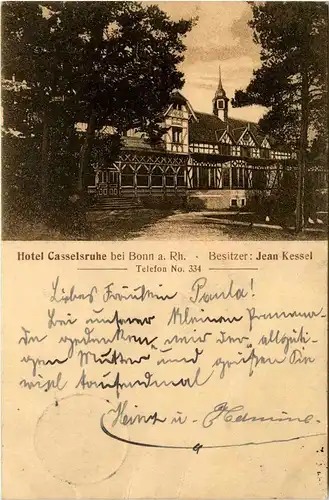 Hotel Casselsruhe bei Bonn a. Rh. · Besitzer: Jean Kessel
Telefon No. 334
Liebes Fräulein Paula!
Bei unserer kleinen Promena-
de gedenken wir der „allgüti-
gen Mutter" und grüßen Sie
viel tausendmal
Heinz u.